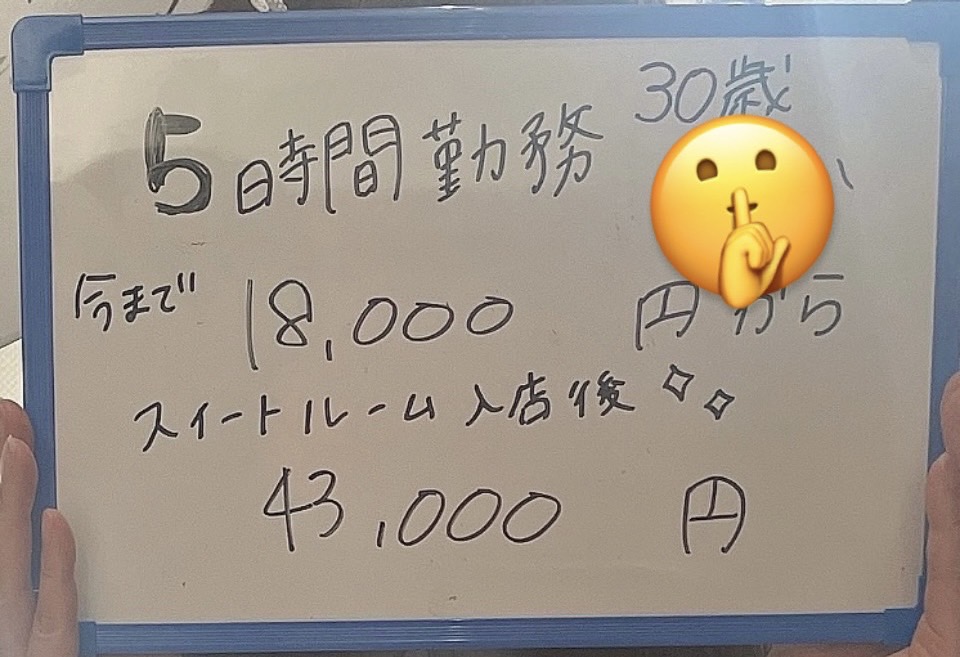 30歳
5時間勤務
今まで 18,000 円から
スイートルーム入店後
43,000 円